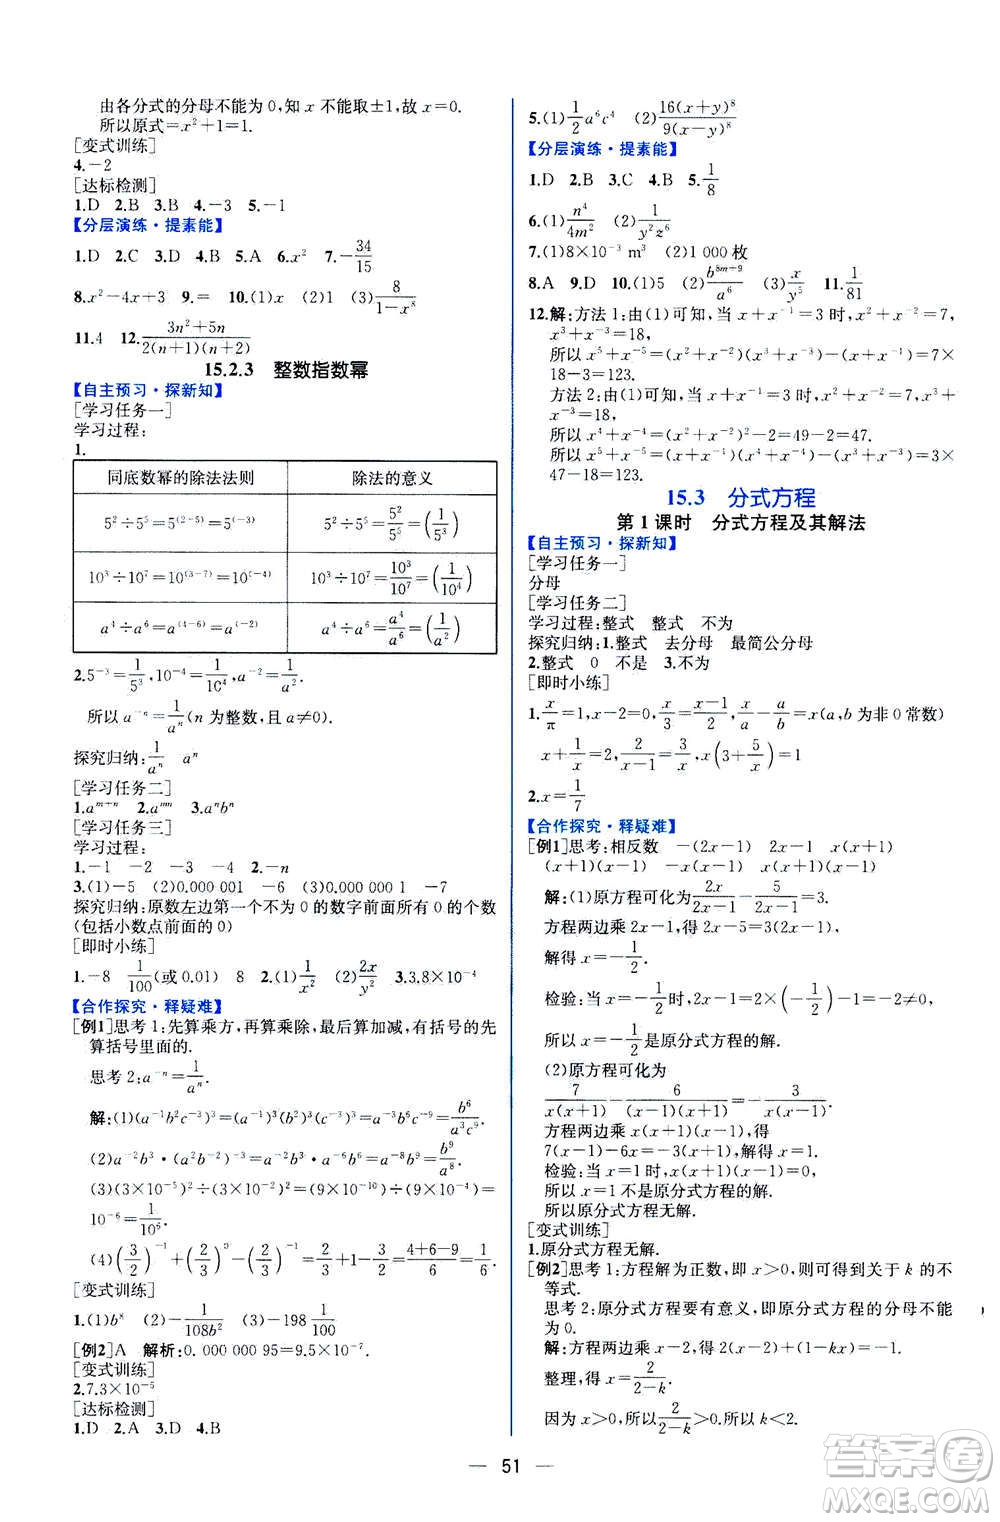 由各分式的分母不能为0,知 x 不能取±1,故 x=0.
所以原式=x²+1=1.
[变式训练]
4.-2
[达标检测]
1.D 2.B 3.B 4.-3 5.-1
【分层演练·提素能】
1.D 2.C 3.D 4.B 5.A 6.x² 7.-34/15
8.x²-4x+3 9.= 10.(1)x (2)1 (3)8/(1-x⁸)
11.4 12.(3n²+5n)/(2(n+1)(n+2))
15.2.3 整数指数幂
【自主预习·探新知】
[学习任务一]
学习过程:
1.
同底数幂的除法法则 除法的意义
5²÷5⁵=5^(2-5)=5^(-3) 5²÷5⁵=5²/5⁵=(1/5³)
10³÷10⁷=10^(3-7)=10^(-4) 10³÷10⁷=10³/10⁷=(1/10⁴)
a⁴÷a⁶=a^(4-6)=a^(-2) a⁴÷a⁶=a⁴/a⁶=(1/a²)
2.5⁻³=1/5³,10⁻⁴=1/10⁴,a⁻²=1/a².
所以 a⁻ⁿ=1/aⁿ(n 为整数,且 a≠0).
探究归纳:1/aⁿ aⁿ
[学习任务二]
1.a^(m+n) 2.a^(mn) 3.aⁿbⁿ
[学习任务三]
学习过程:
1.-1 -2 -3 -4 2.-n
3.(1)-5 (2)0.000 001 -6 (3)1 -7
探究归纳:原数左边第一个不为0的数字前面所有0的个数
(包括小数点前面的0)
[即时小练]
1.-8 1/100(或0.01) 8 2.(1)1/x² (2)2x/y² 3.3.8×10⁻⁴
【合作探究·释疑难】
[例1]思考1:先算乘方,再算乘除,最后算加减,有括号的先
算括号里面的.
思考2:a⁻ⁿ=1/aⁿ.
解:(1)(a⁻¹b²c⁻³)³=(a⁻¹)³(b²)³(c⁻³)³=a⁻³b⁶c⁻⁹=b⁶/(a³c⁹).
(2)a⁻²b³·(a²b⁻²)⁻³=a⁻²b³·a⁻⁶b⁶=a⁻⁸b⁹=b⁹/a⁸.
(3)(3×10⁻⁵)²÷(3×10⁻²)²=(9×10⁻¹⁰)÷(9×10⁻⁴)=
10⁻⁶=1/10⁶.
(4)(3/2)⁻¹+(2/3)⁰-(2/3)⁻¹=2/3+1-3/2=(4+6-9)/6=1/6.
[变式训练]
1.(1)b⁸ (2)-1/(108b²) (3)-198 1/100
[例2]A 解析:0.000 000 95=9.5×10⁻⁷.
[变式训练]
2.7.3×10⁻⁵
[达标检测]
1.D 2.A 3.D 4.B
5.(1)1/2 a⁶c⁴ (2)16(x+y)⁸/9(x-y)⁸
【分层演练·提素能】
1.D 2.B 3.C 4.B 5.1/8
6.(1)n⁴/4m² (2)1/(y²z⁶)
7.(1)8×10⁻³ m³ (2)1 000 枚
8.A 9.A 10.(1)5 (2)b^(8m+9)/a⁶ (3)x/y⁵ 11.1/81
12.解:方法1:由(1)可知,当 x+x⁻¹=3时,x²+x⁻²=7,
x³+x⁻³=18,
所以 x⁵+x⁻⁵=(x²+x⁻²)(x³+x⁻³)-(x+x⁻¹)=7×
18-3=123.
方法2:由(1)可知,当 x+x⁻¹=3时,x²+x⁻²=7,x³+
x⁻³=18,
所以 x⁴+x⁻⁴=(x²+x⁻²)²-2=49-2=47.
所以 x⁵+x⁻⁵=(x⁴+x⁻⁴)(x+x⁻¹)-(x³+x⁻³)=3×
47-18=123.
15.3 分式方程
第1课时 分式方程及其解法
【自主预习·探新知】
[学习任务一]
分母
[学习任务二]
学习过程:整式 整式 不为
探究归纳:1.整式 去分母 最简公分母
2.整式 0 不是 3.不为
[即时小练]
1.x/π=1,x-2=0,x/3=(x-1)/2,x/a-a/b=x(a,b为非0常数)
x+1/x=2,x(3+5/x)=-1
2.x=1/7
【合作探究·释疑难】
[例1]思考:相反数 -(2x-1) 2x-1 x(x+1)
(x+1)(x-1) -x(x-1) x(x+1)(x-1)
解:(1)原方程可化为2x/(2x-1)-5/(2x-1)=3.
方程两边乘2x-1,得2x-5=3(2x-1),
解得 x=-1/2.
检验:当 x=-1/2时,2x-1=2×(-1/2)-1=-2≠0,
所以 x=-1/2是原分式方程的解.
(2)原方程可化为
7/(x(x+1))-6/((x+1)(x-1))=-3/(x(x-1)).
方程两边乘 x(x+1)(x-1),得
7(x-1)-6x=-3(x+1),解得 x=1.
检验:当 x=1时,x(x+1)(x-1)=0,
所以 x=1不是原分式方程的解.
所以原分式方程无解.
[变式训练]
1.原分式方程无解.
[例2]思考1:方程解为正数,即 x>0,可得到关于 k 的不
等式.
思考2:原分式方程要有意义,即原分式方程的分母不能
为0.
解:方程两边乘 x-2,得2(x-2)+(1-kx)=-1.
整理,得 x=2/(2-k).
因为 x>0,所以2/(2-k)>0.所以 k<2.
— 51 —
答案圈
MXQE.COM